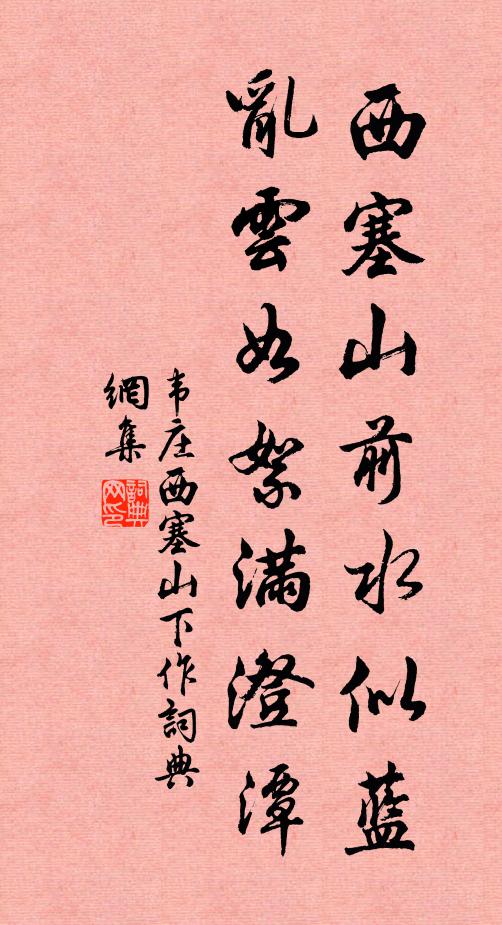 西塞山前水似藍
亂雲如絮滿澄潭
韦庄西塞山下作詞典
網集
詞典
网印